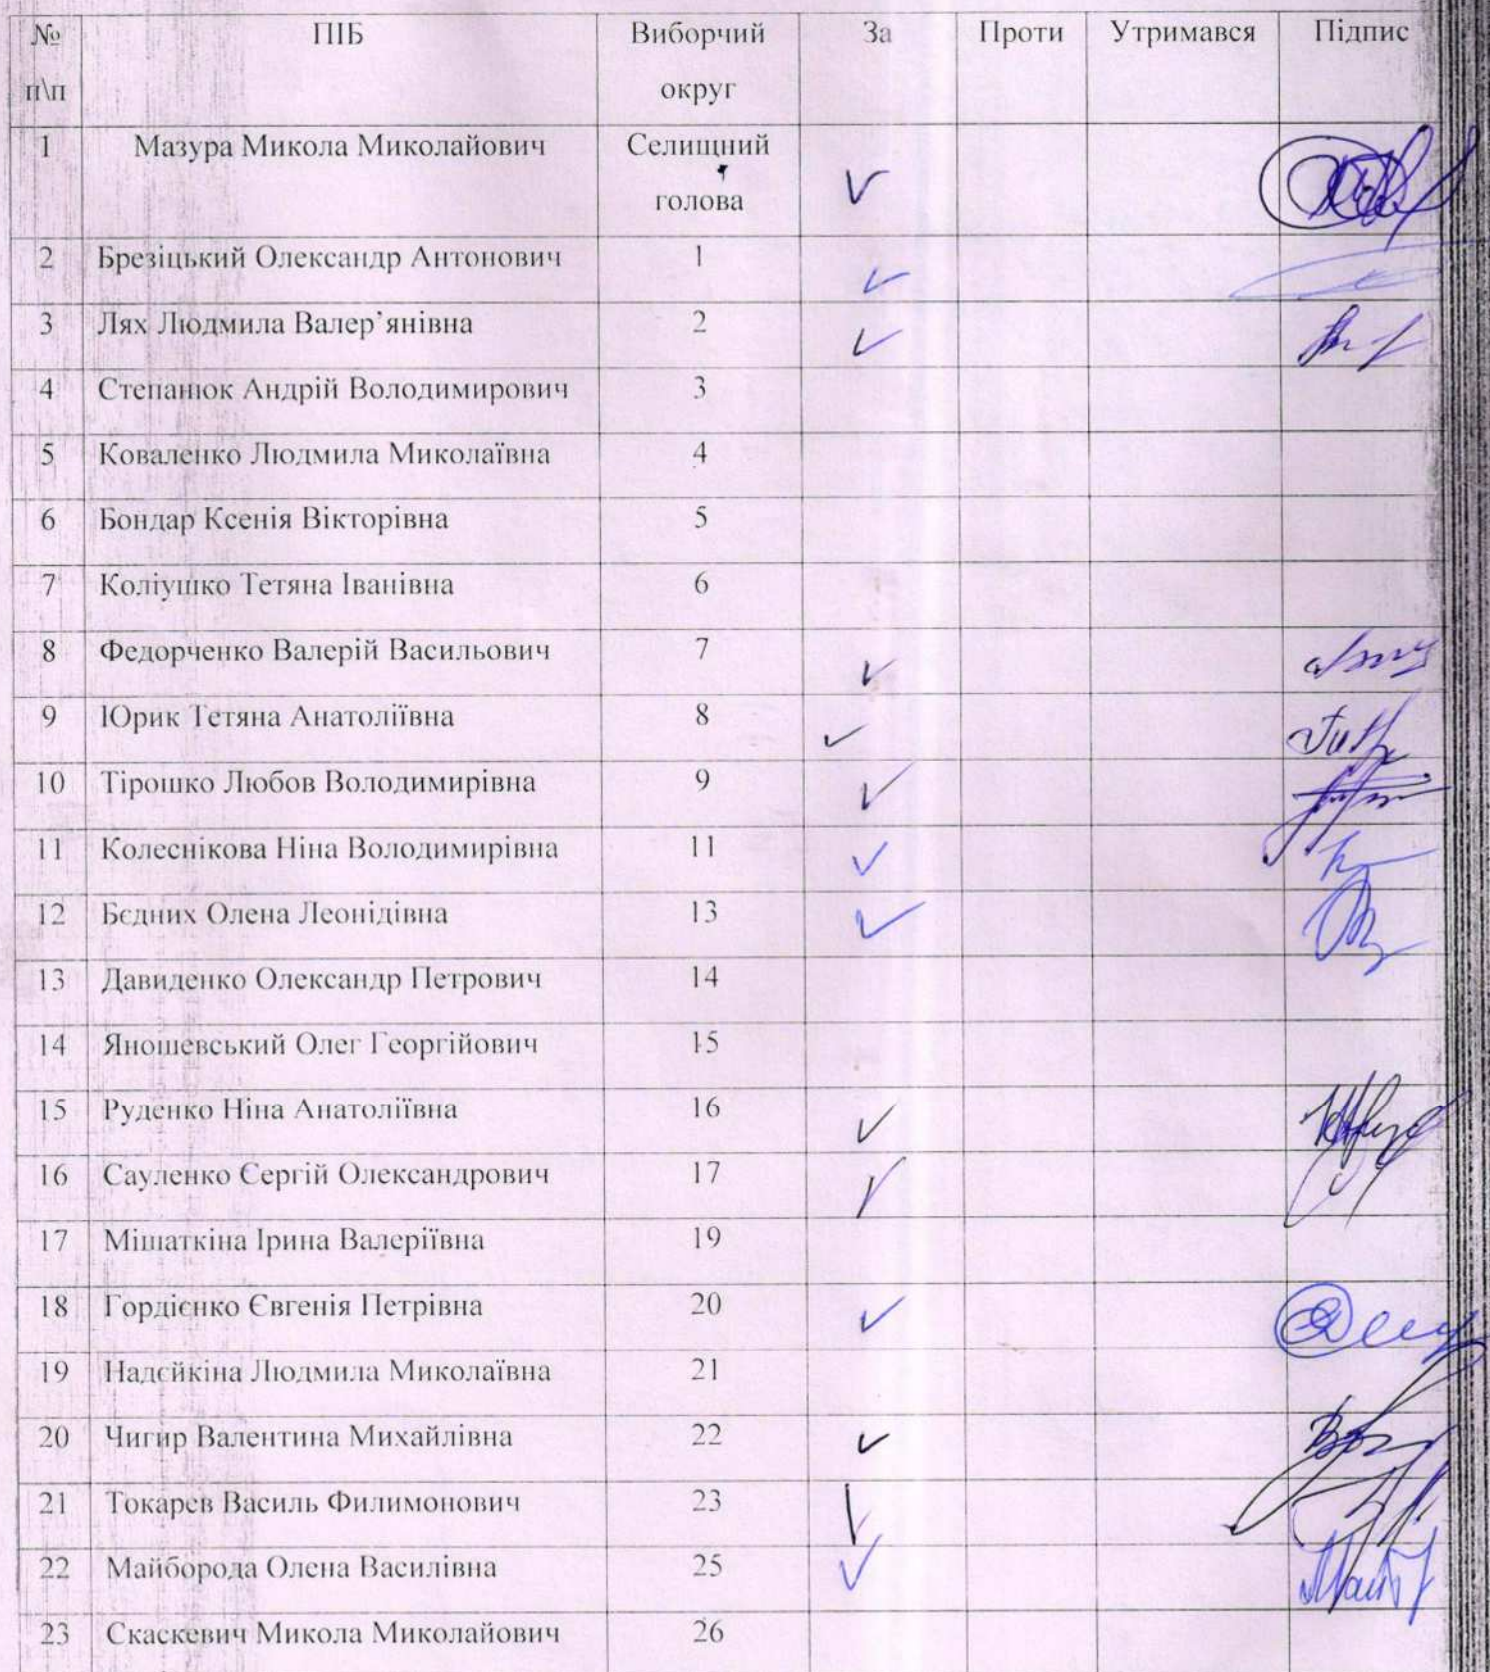 № п\п ПІБ Виборчий округ За Проти Утримався Підпис
1 Мазура Микола Миколайович Селищний голова V
2 Брезіцький Олександр Антонович 1 V
3 Лях Людмила Валер’янівна 2 V
4 Степанюк Андрій Володимирович 3
5 Коваленко Людмила Миколаївна 4
6 Бондар Ксенія Вікторівна 5
7 Коліушко Тетяна Іванівна 6
8 Федорченко Валерій Васильович 7 V
9 Юрик Тетяна Анатоліївна 8 V
10 Тірошко Любов Володимирівна 9 V
11 Колеснікова Ніна Володимирівна 11 V
12 Бєдних Олена Леонідівна 13 V
13 Давиденко Олександр Петрович 14
14 Яношевський Олег Георгійович 15
15 Руденко Ніна Анатоліївна 16 V
16 Сауленко Сергій Олександрович 17 V
17 Мішаткіна Ірина Валеріївна 19
18 Гордієнко Євгенія Петрівна 20 V
19 Надєйкіна Людмила Миколаївна 21
20 Чигир Валентина Михайлівна 22 V
21 Токарєв Василь Филимонович 23 V
22 Майборода Олена Василівна 25 V
23 Скаскевич Микола Миколайович 26